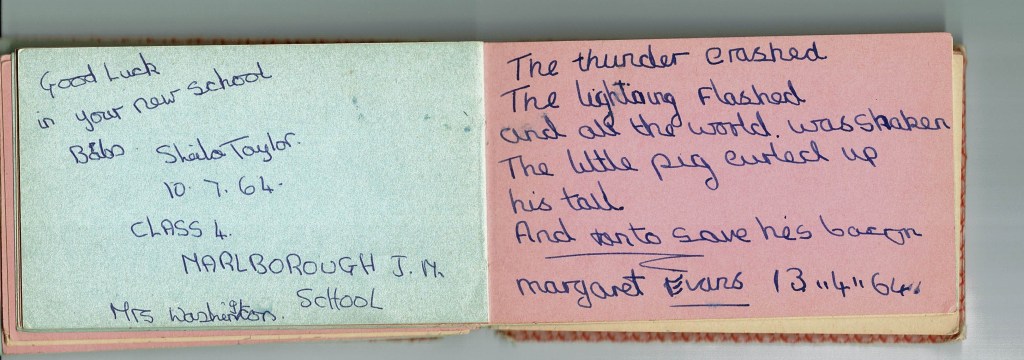 Good Luck
in your new school
Babs Sheila Taylor.
10. 7. 64.
CLASS 4.
MARLBOROUGH J. M.
SCHOOL
Mrs Washington.
The thunder crashed
The lightning Flashed
and all the world. was Shaken
The little pig curled up
his tail
And ran to save his bacon
margaret Evans 13 "4" 64"